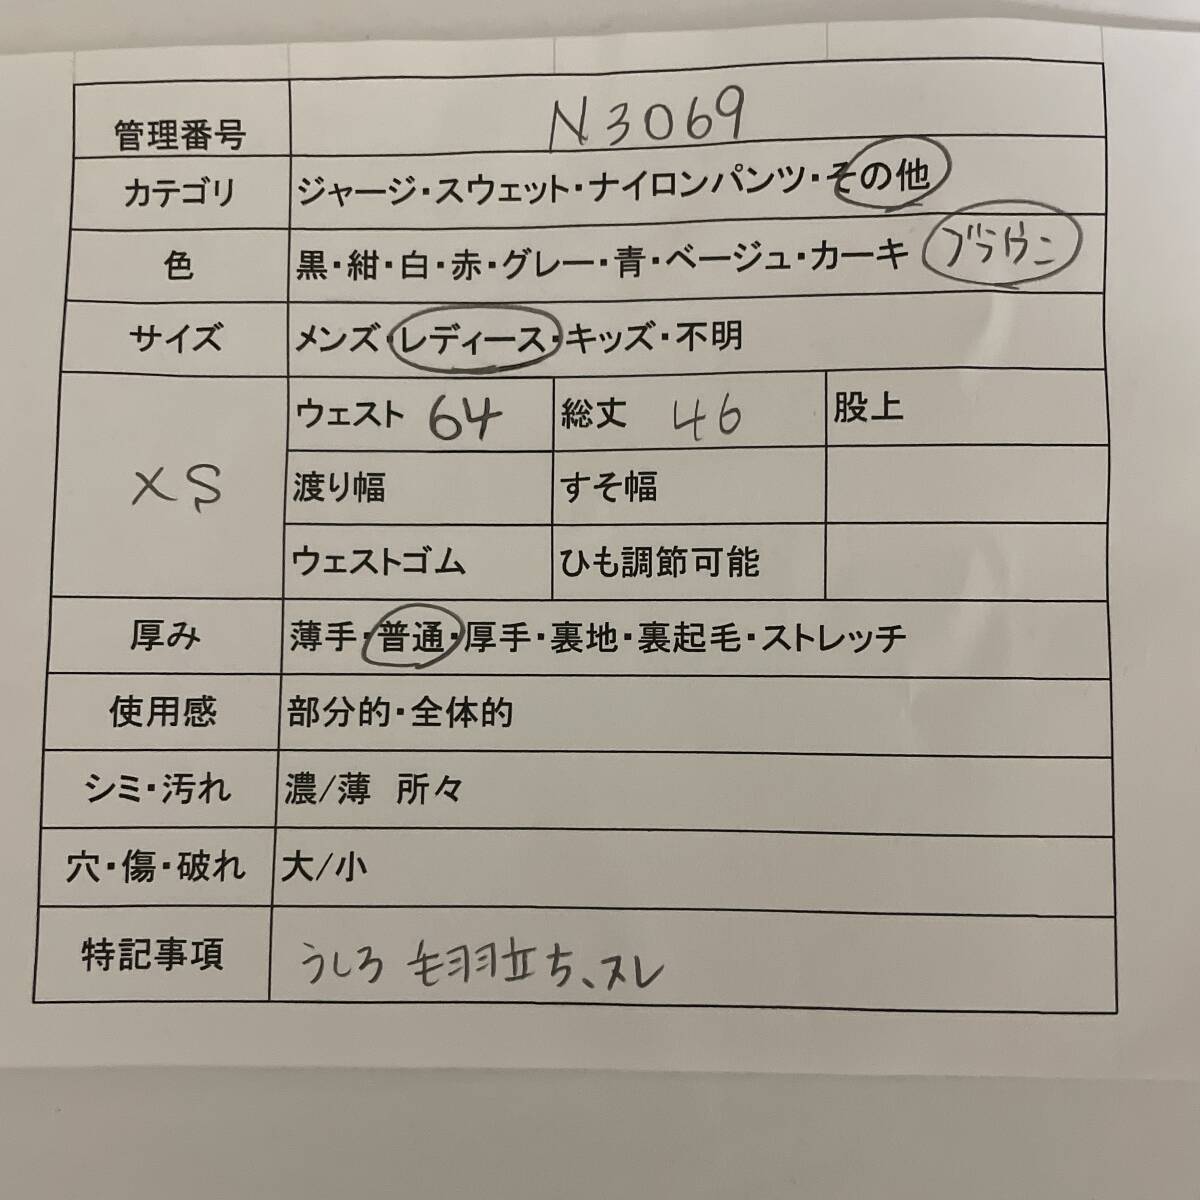 管理番号 N3069
カテゴリ ジャージ・スウェット・ナイロンパンツ・その他
色 黒・紺・白・赤・グレー・青・ベージュ・カーキ ブラウン
サイズ メンズ・レディース・キッズ・不明
XS
ウェスト 64 総丈 46 股上
渡り幅 すそ幅
ウェストゴム ひも調節可能
厚み 薄手・普通・厚手・裏地・裏起毛・ストレッチ
使用感 部分的・全体的
シミ・汚れ 濃/薄 所々
穴・傷・破れ 大/小
特記事項 うしろ 毛羽立ち、スレ